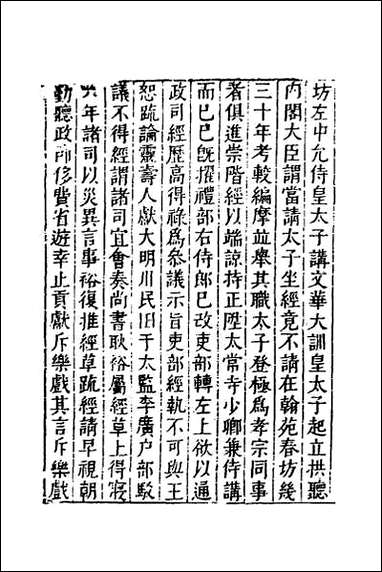 坊左中允侍皇太子講文華大訓皇太子起立拱聽
內閣大臣謂當請太子坐經竟不請在翰苑春坊幾
三十年考較編摩並舉其職太子登極爲孝宗同事
者俱進崇階經以端諒持正陞太常寺少卿兼侍講
而已已旣擢禮部右侍郎已改吏部轉左上欲以通
政司經歷高得祿爲叅議示旨吏部經執不可與王
恕疏論靈壽人獻大明川民田于太監李廣户部駁
議不得經謂諸司宜會奏尚書耿裕屬經草上得寢
六年諸司以災異言事裕復推經草疏經請早視朝
勤聽政節侈費省遊幸止貢獻斥樂戲其言斥樂戲